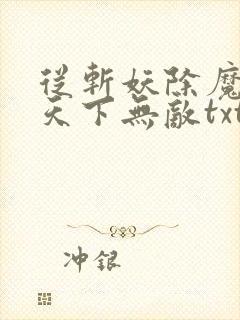 從斬妖除魔
天下無敵txt
冲銀